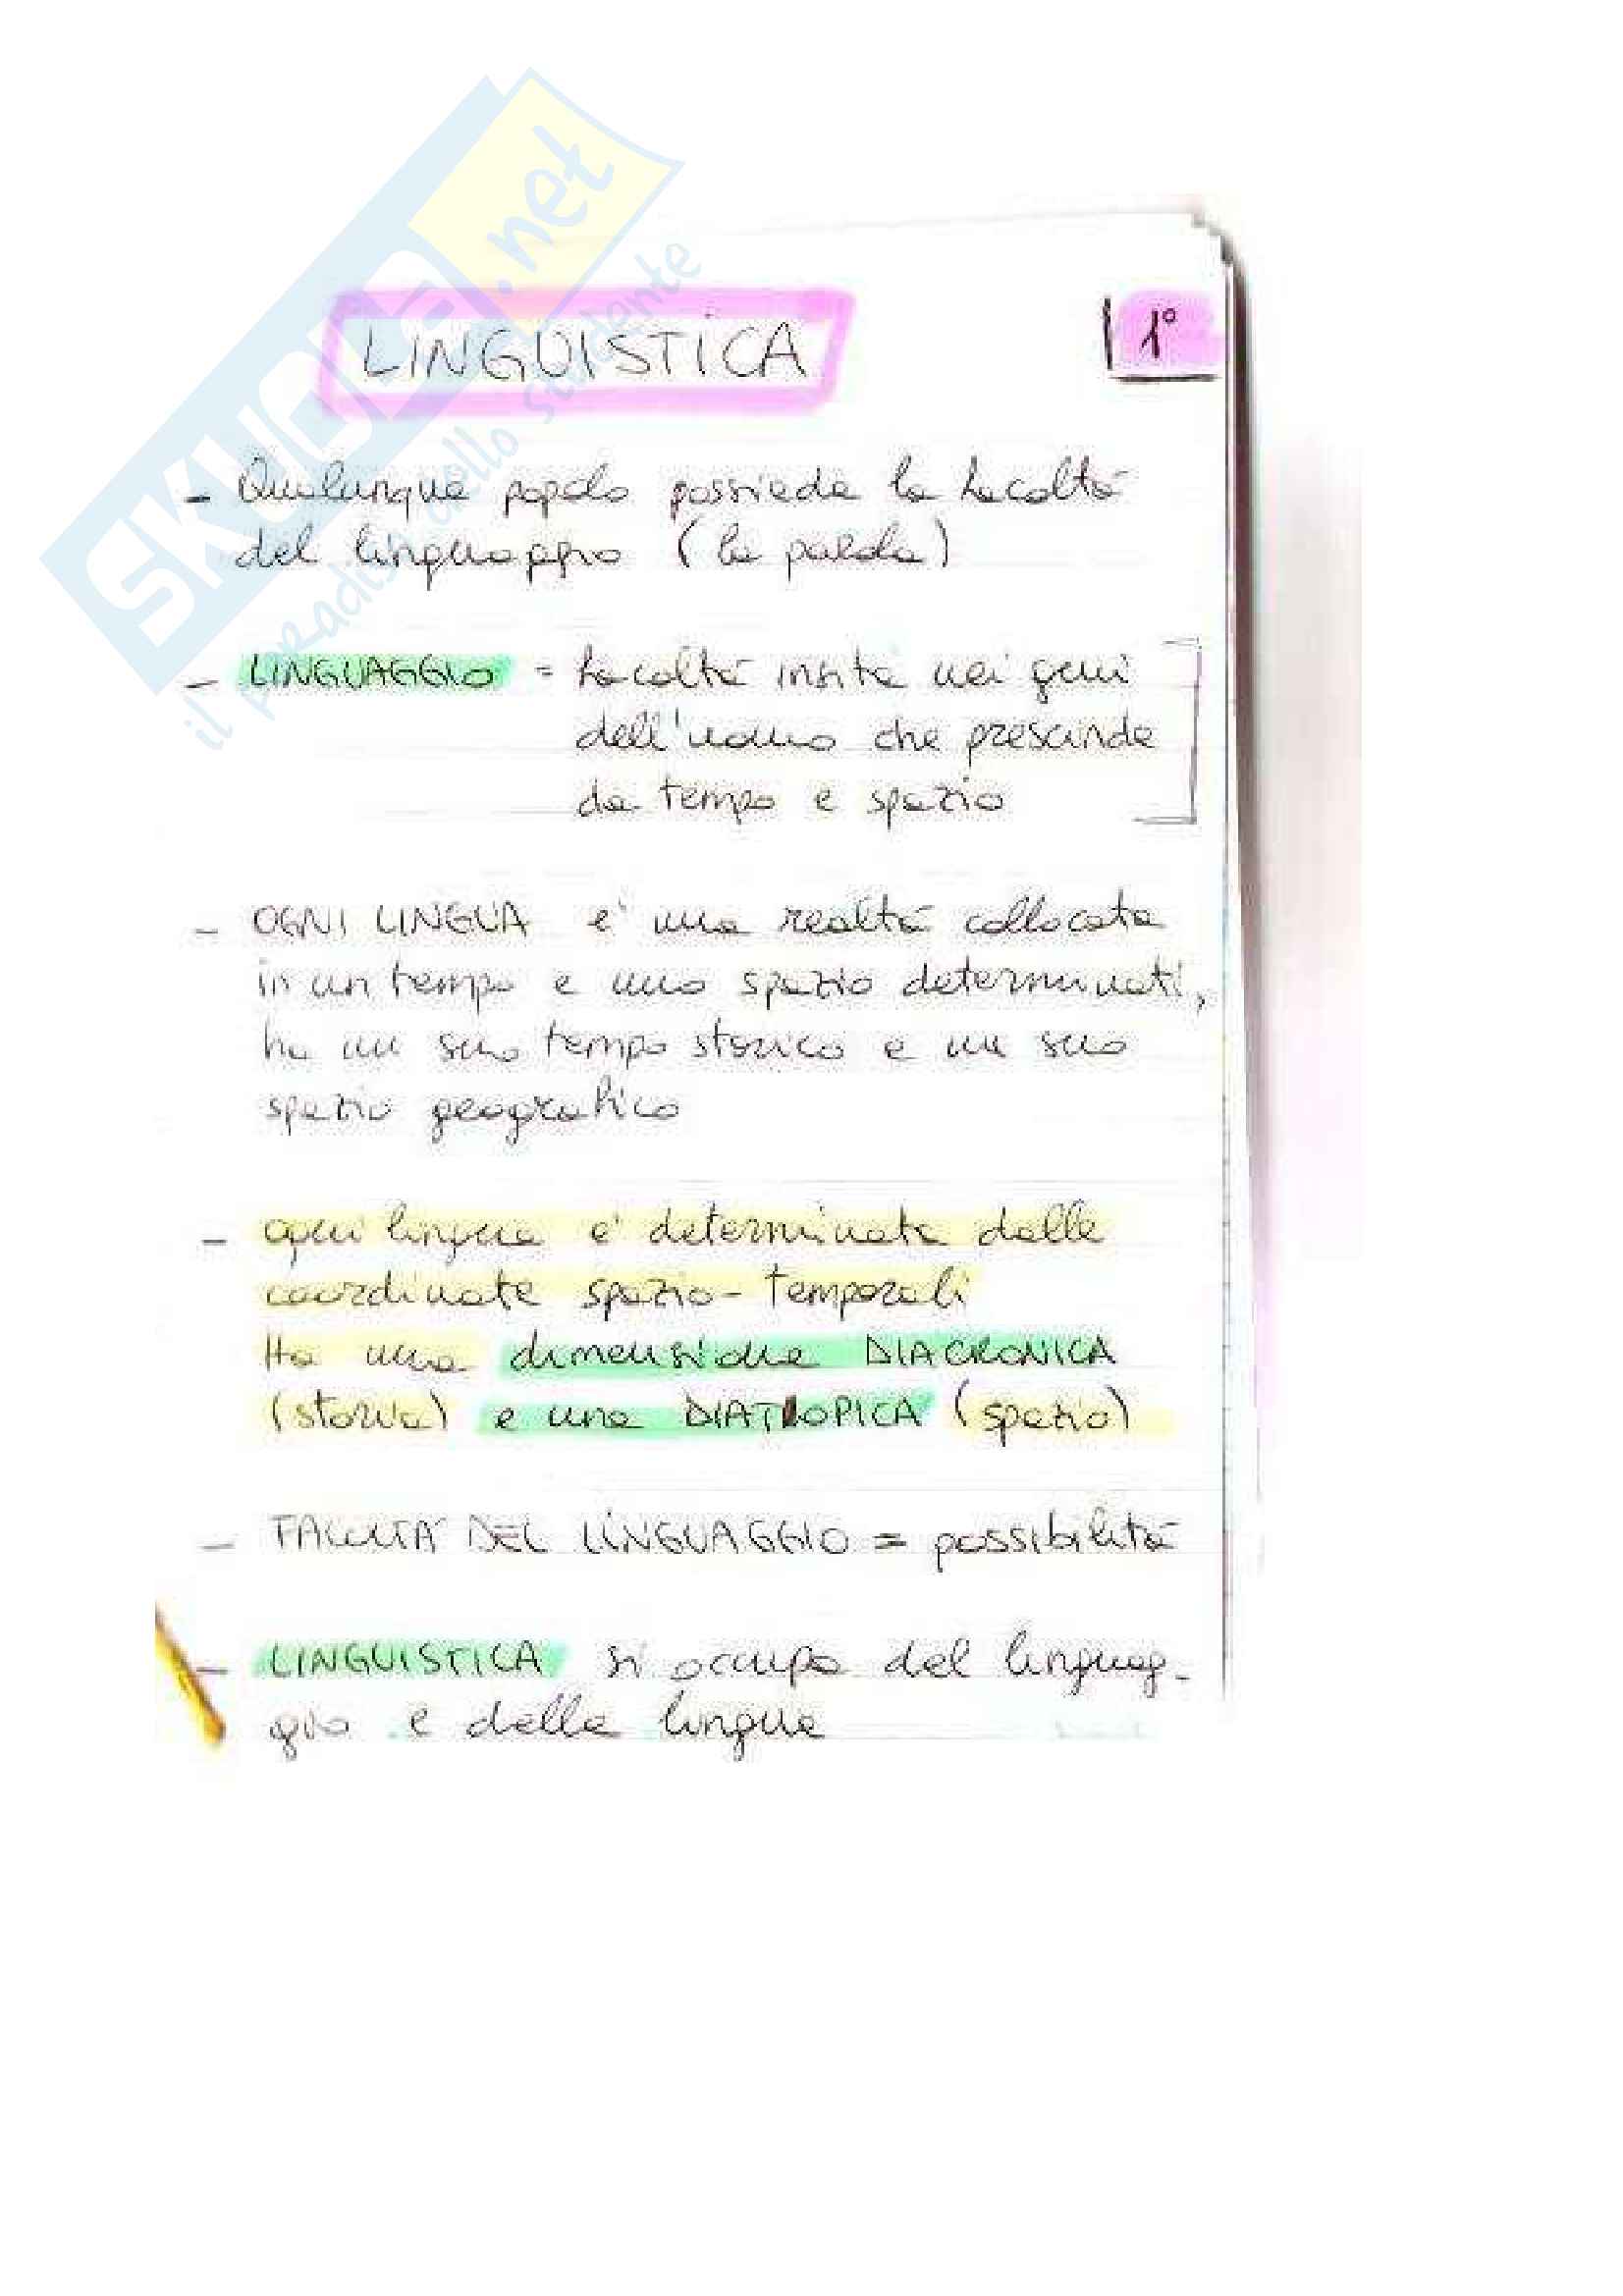 SKUOLA.net
il paradiso dello studente
LINGUISTICA
1°
- Qualunque popolo possiede la facoltà
del linguaggio (la parola)
- LINGUAGGIO = facoltà insita nei geni
dell'uomo che prescinde
da tempo e spazio
- OGNI LINGUA e' una realtà collocata
in un tempo e uno spazio determinati,
ha un suo tempo storico e un suo
spazio geografico
- ogni lingua e' determinata dalle
coordinate spazio-temporali
Ha una dimensione DIACRONICA
(storia) e una DIATOPICA (spazio)
- FACOLTÀ DEL LINGUAGGIO = possibilità
- LINGUISTICA si occupa del linguag-
gio e della lingua